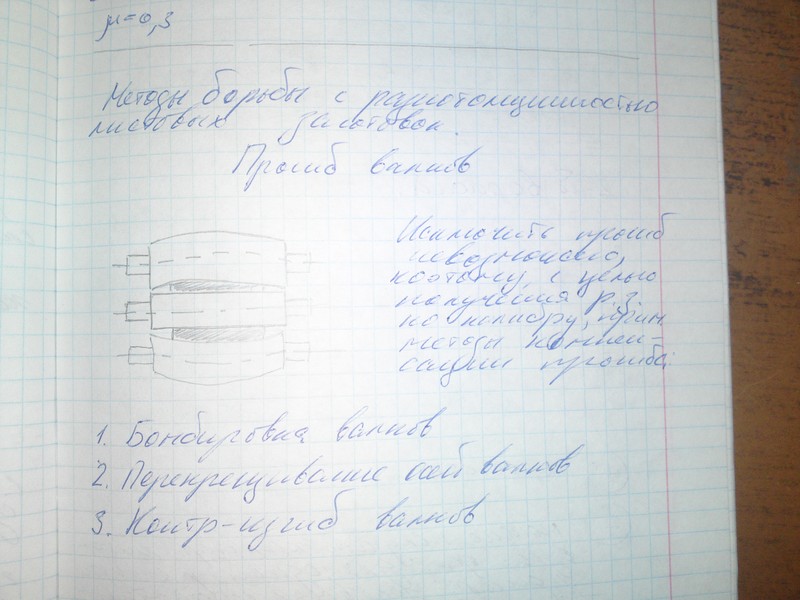 μ=0,3
Методы борьбы с разнотолщинностью
листовых заготовок.
Прогиб валков
Исключить прогиб
невозможно,
поэтому, с целью
получения р.з.
по калибру, прим.
методы компен-
сации прогиба:
1. Бомбировка валков
2. Перекрещивание осей валков
3. Контр-изгиб валков